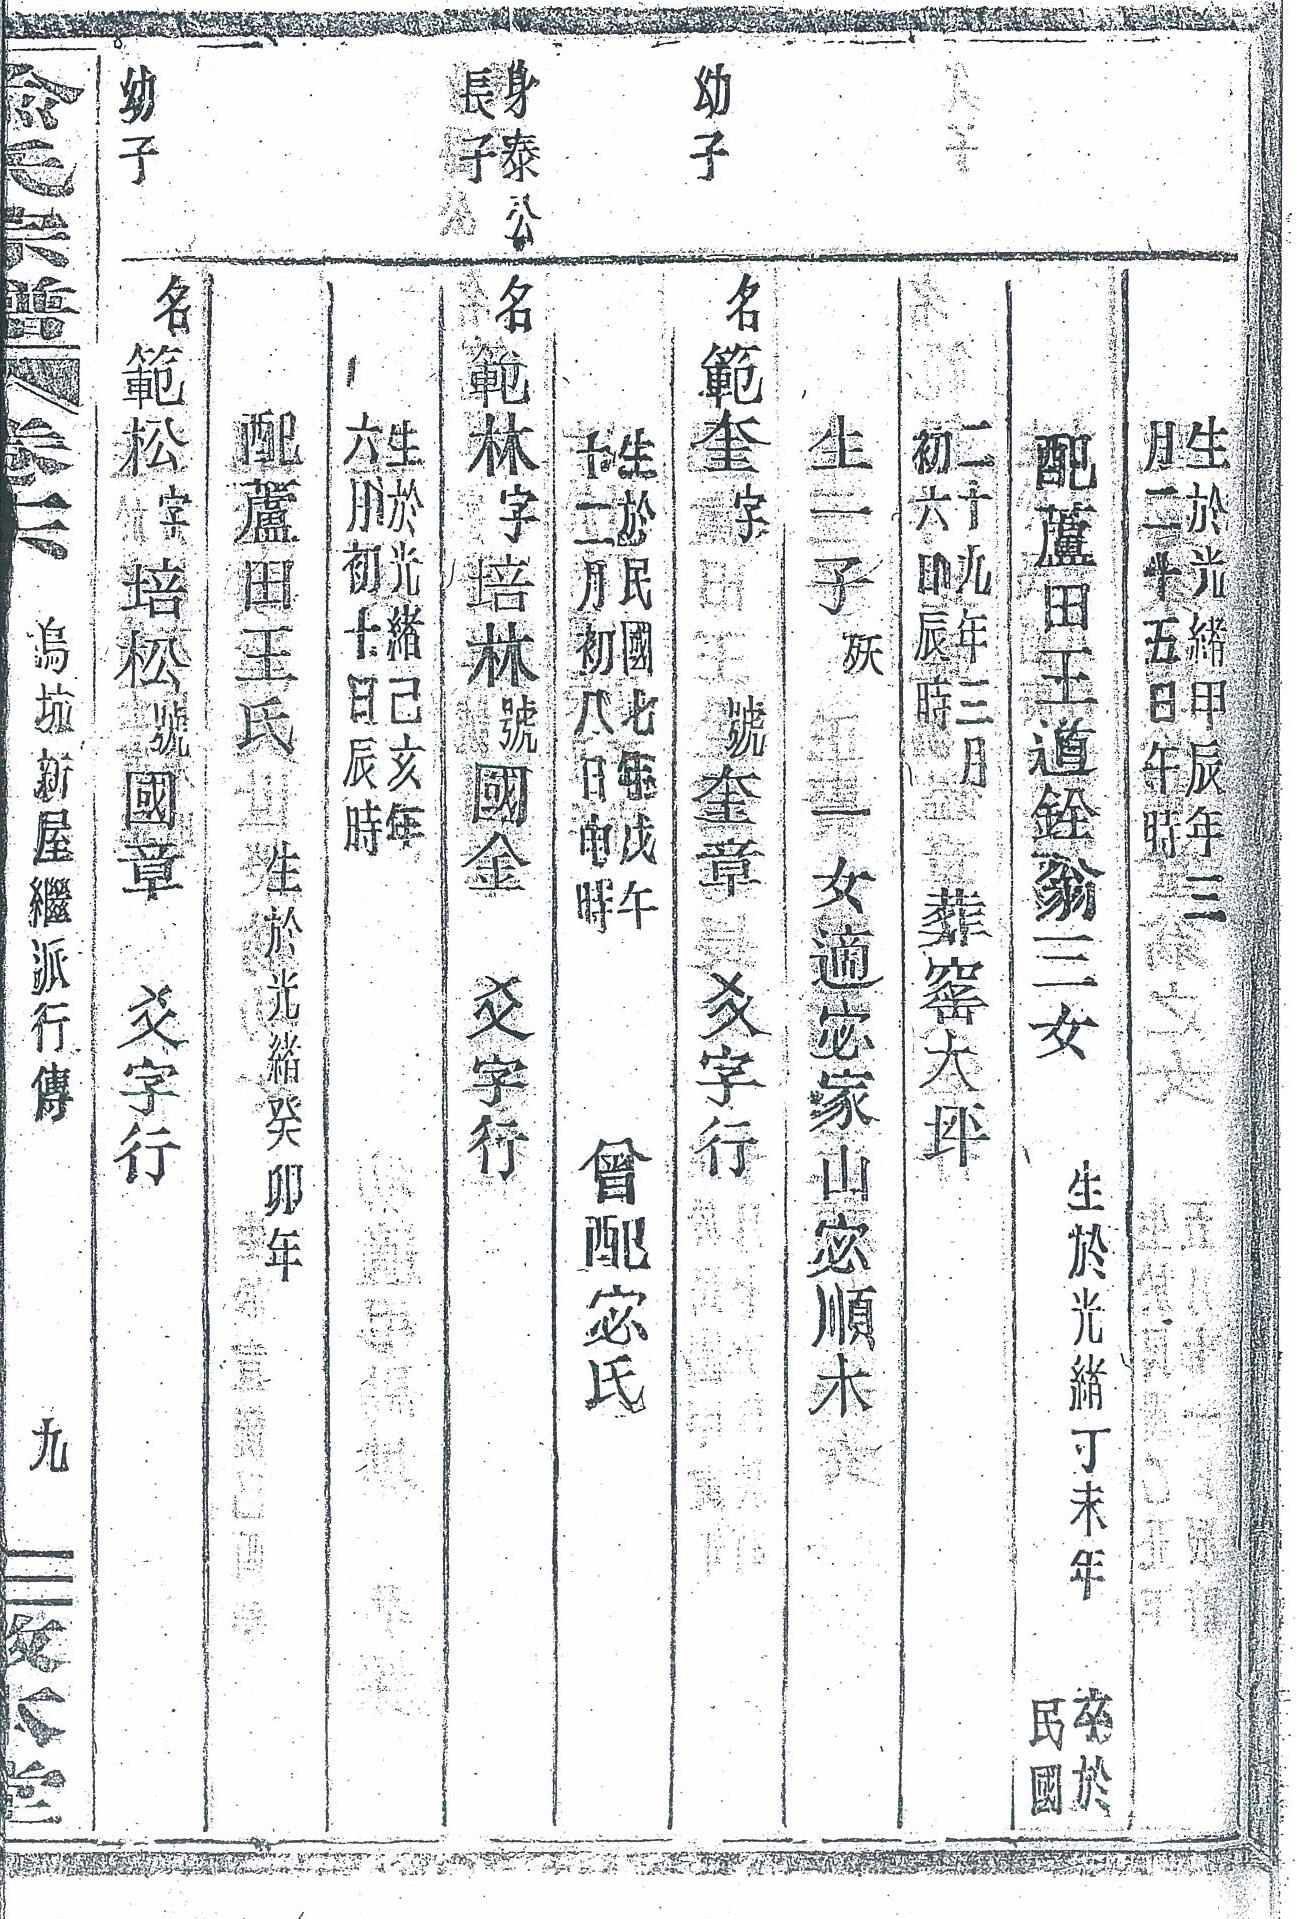 生於光緒甲辰年三
月二十五日午時
配蘆田王道銓翁三女
生於光緒丁未年
卒於
民國
二十九年三月
初六日辰時
葬窑大坪
生一子殀
一女適宓家山宓順木
幼子
名範奎字
號奎章
爻字行
生於民國七年戊午
十二月初八日申時
曾配宓氏
身泰公
長子
名範林字培林號國金
爻字行
生於光緒己亥年
六月初十日辰時
配蘆田王氏
生於光緒癸卯年
幼子
名範松字培松號國章
爻字行
俞氏宗譜
卷六
塢坑新屋繼派行傳
九
敦本堂